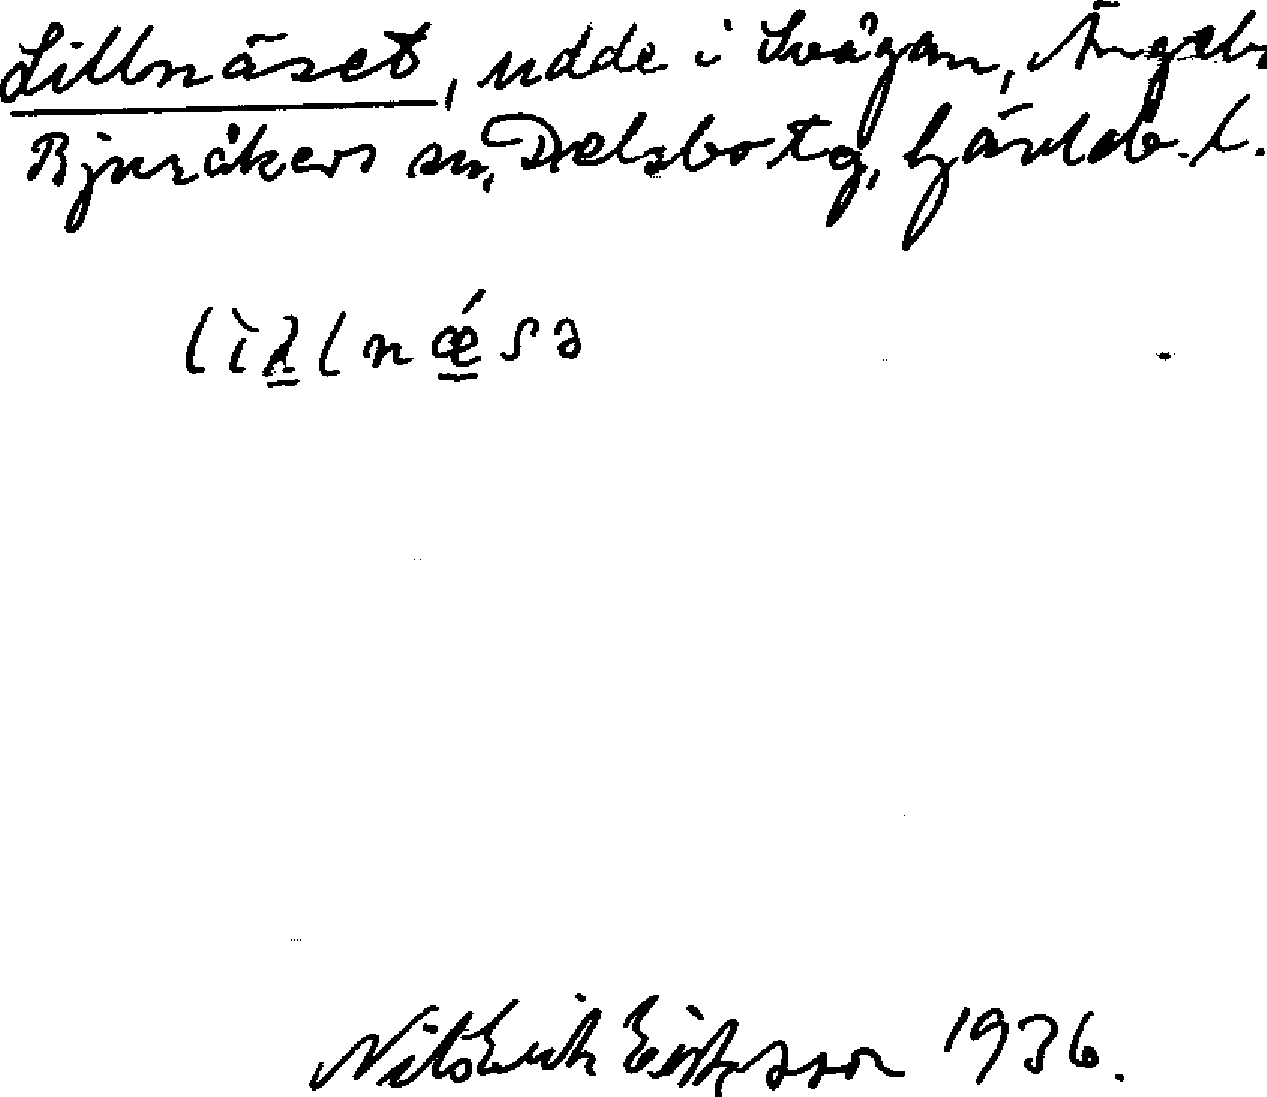 Lillnäset, udde i Svågan, Ängeb
Bjuråkers sn, Delsbo tg, Gävleb. l.
lìllnǽsə
Nils Erik Eriksson 1936.